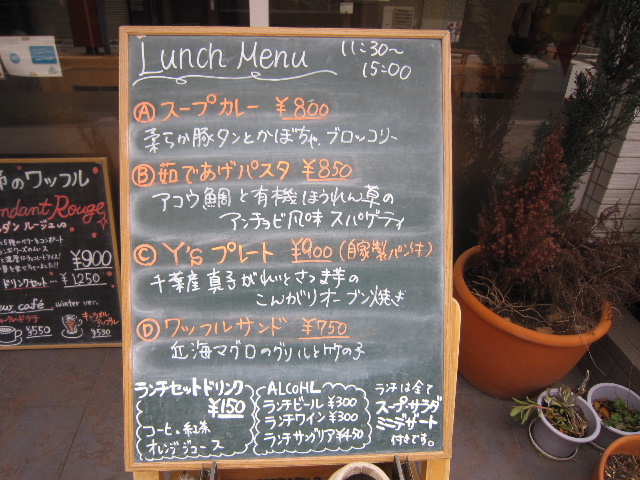 Lunch Menu 11:30~
15:00
Ⓐスープカレー ¥800
柔らか豚タンとかぼちゃ、ブロッコリー
Ⓑ茹であげパスタ ¥850
アコウ鯛と有機ほうれん草の
アンチョビ風味スパゲティ
Ⓒ Y'sプレート ¥900 (自家製パン付)
千葉産真子がれいとさつま芋の
こんがりオーブン焼き
Ⓓワッフルサンド ¥750
近海マグロのグリルと竹の子
ランチセットドリンク
¥150
コーヒー、紅茶
オレンジジュース
ALCOHL
ランチビール ¥300
ランチワイン ¥300
ランチサングリア ¥450
ランチは全て
スープ・サラダ
ミニデザート
付きです。
のワッフル
ndant Rouge
ダン ルージュの
¥900
ドリンクセット… ¥1250
ew café winter ver.
¥550
¥530